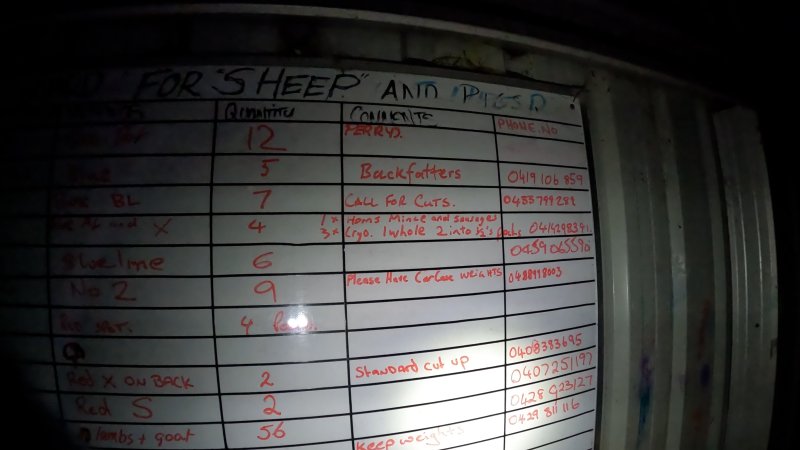 FOR "SHEEP" AND PIGS
QUANTITY COMMENTS PHONE.NO
12 PERRYS.
5 Backfatters 0419 106 859
BL 7 CALL FOR CUTS. 0455 799 282
and X 4 1 x Hams Mince and sausages
3 x Cryo. 1 whole 2 into 1/2's
6 0439 065590
No 2 9 Please Have Carcase weights 0488918003
4
Red X ON BACK 2 Standard cut up 0408383695
Red S 2 0407251197
0428 923127
lambs + goat 56 Keep weights 0429 811 116